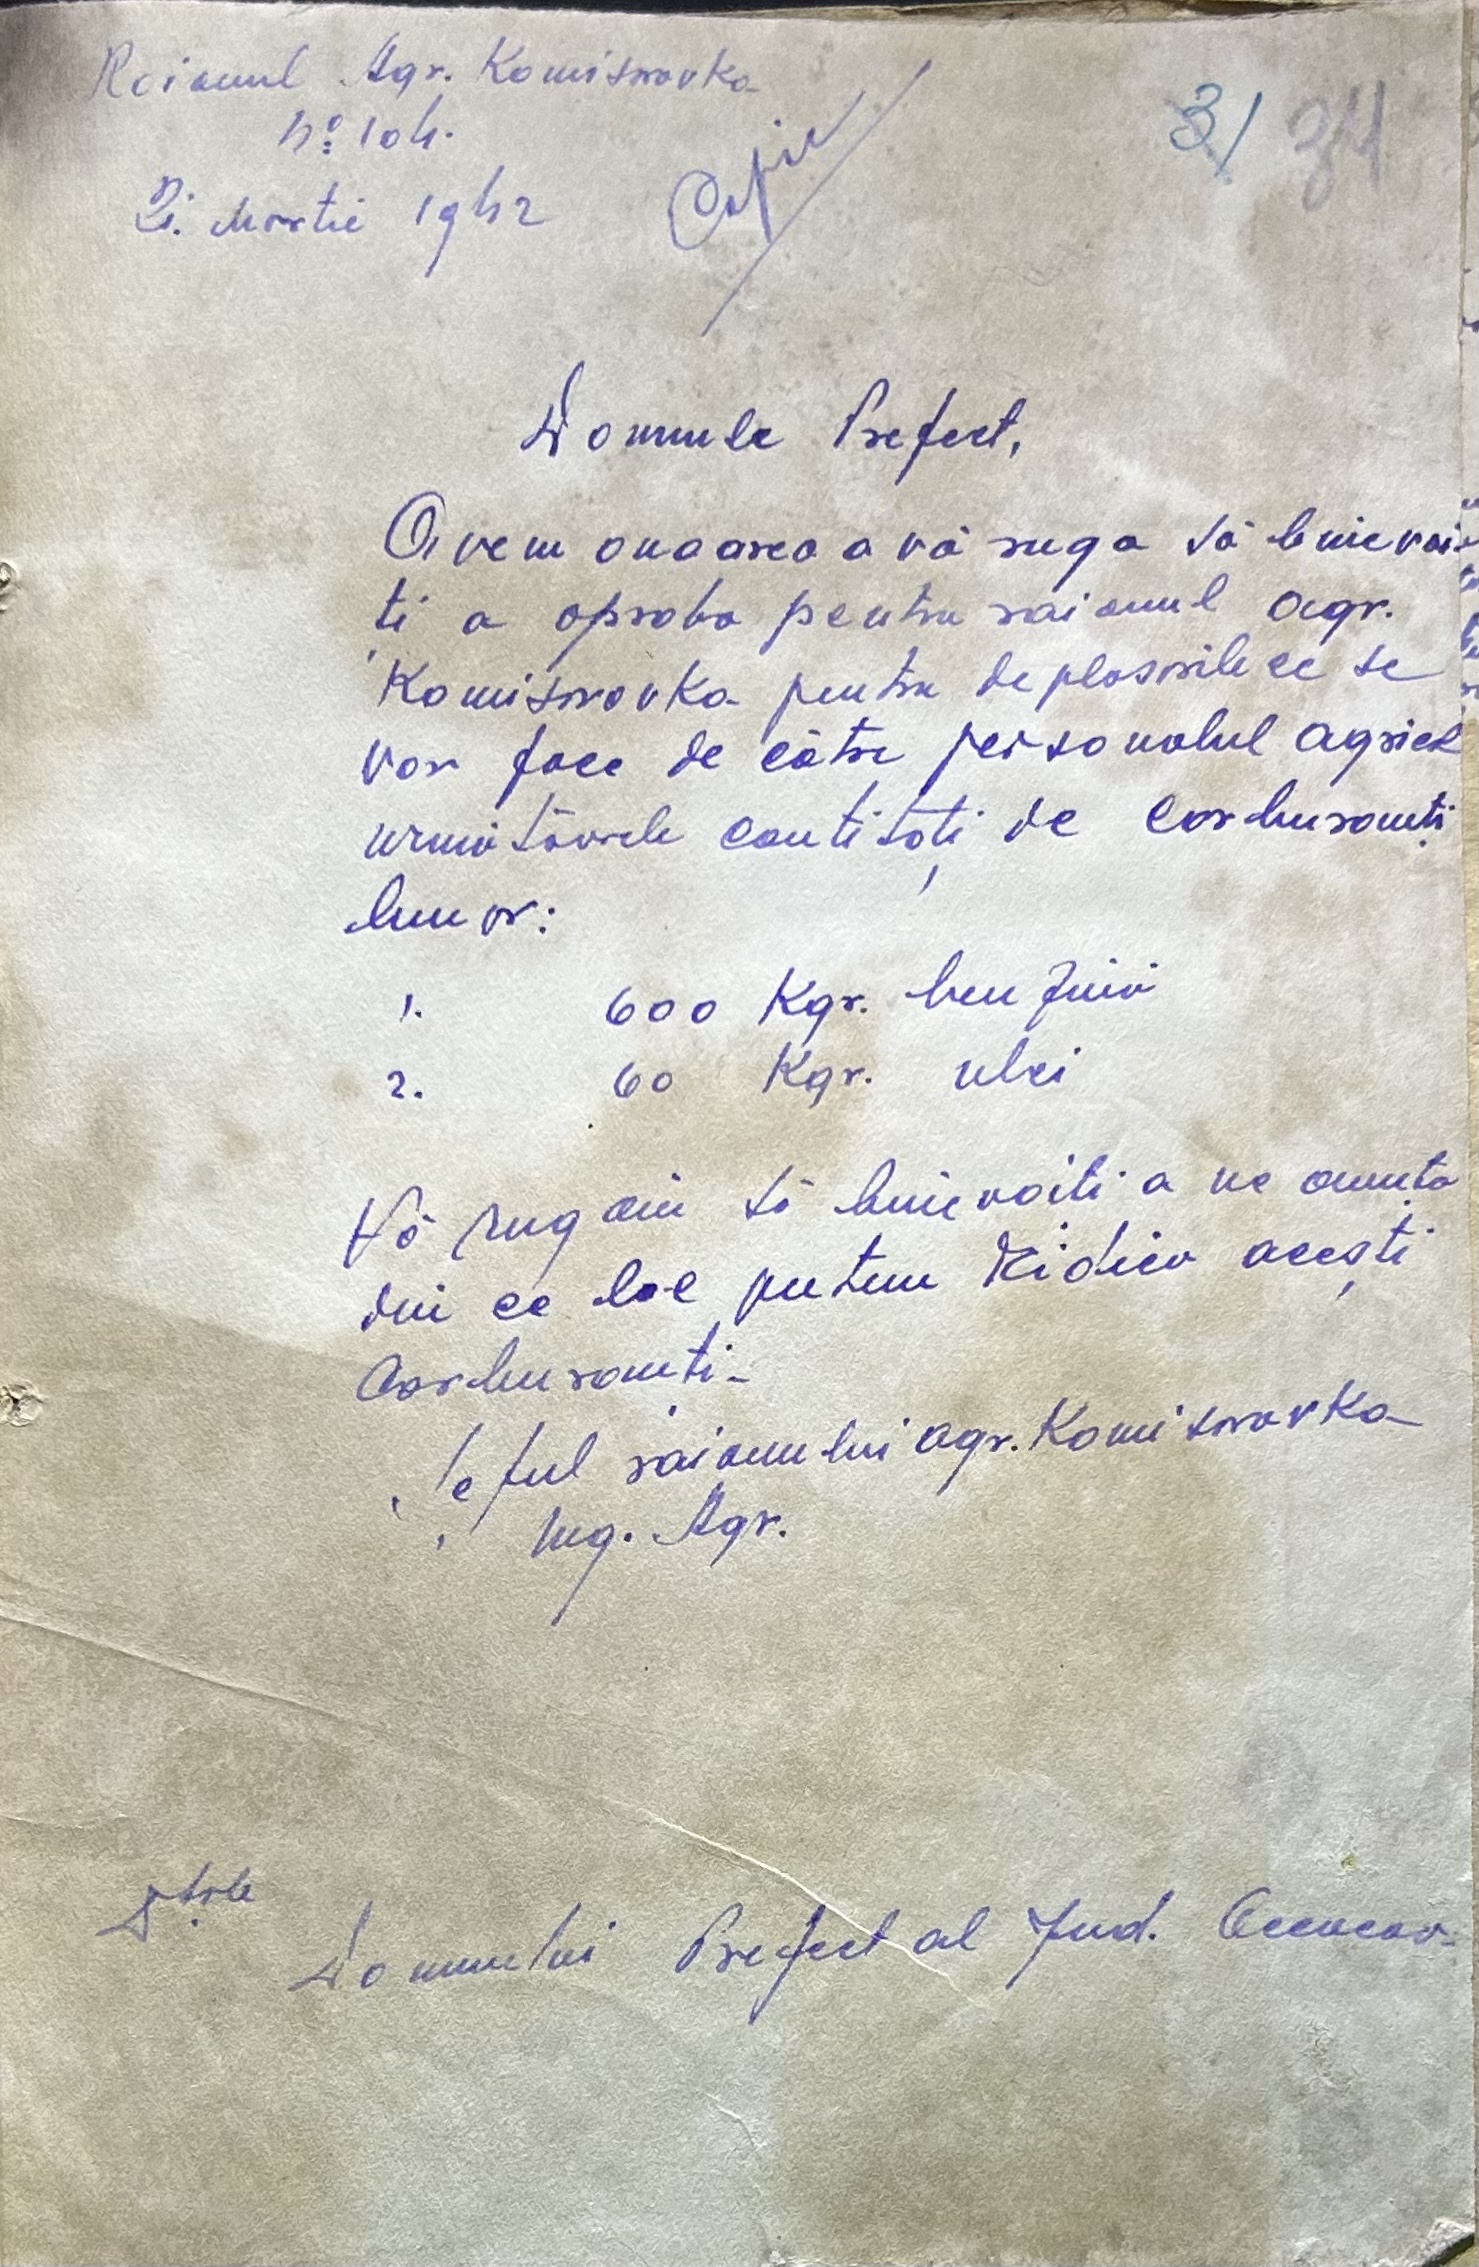 Raionul Agr. Komisarovka
No 104.
2. Martie 1942
Copie
31 34
Domnule Prefect,
Avem onoarea a vă ruga să binevoi-
ți a aproba pentru raionul agr.
Komisarovka pentru deplasările ce se
vor face de către personalul agricol
următoarele cantități de carburanți
lunar:
1. 600 Kgr. benzină
2. 60 Kgr. ulei
Vă rugăm să binevoiti a ne anunța
din ce loc putem ridica acești
Carburanti-
Șeful raionului agr. Komisarovka
Ing. Agr.
Domnului Prefect al Jud. Oceacov.